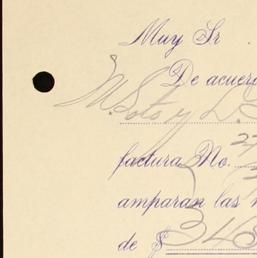 Muy Sr
De acuerd
M. Soto y D.
factura No. 27
amparan las
de $ 348